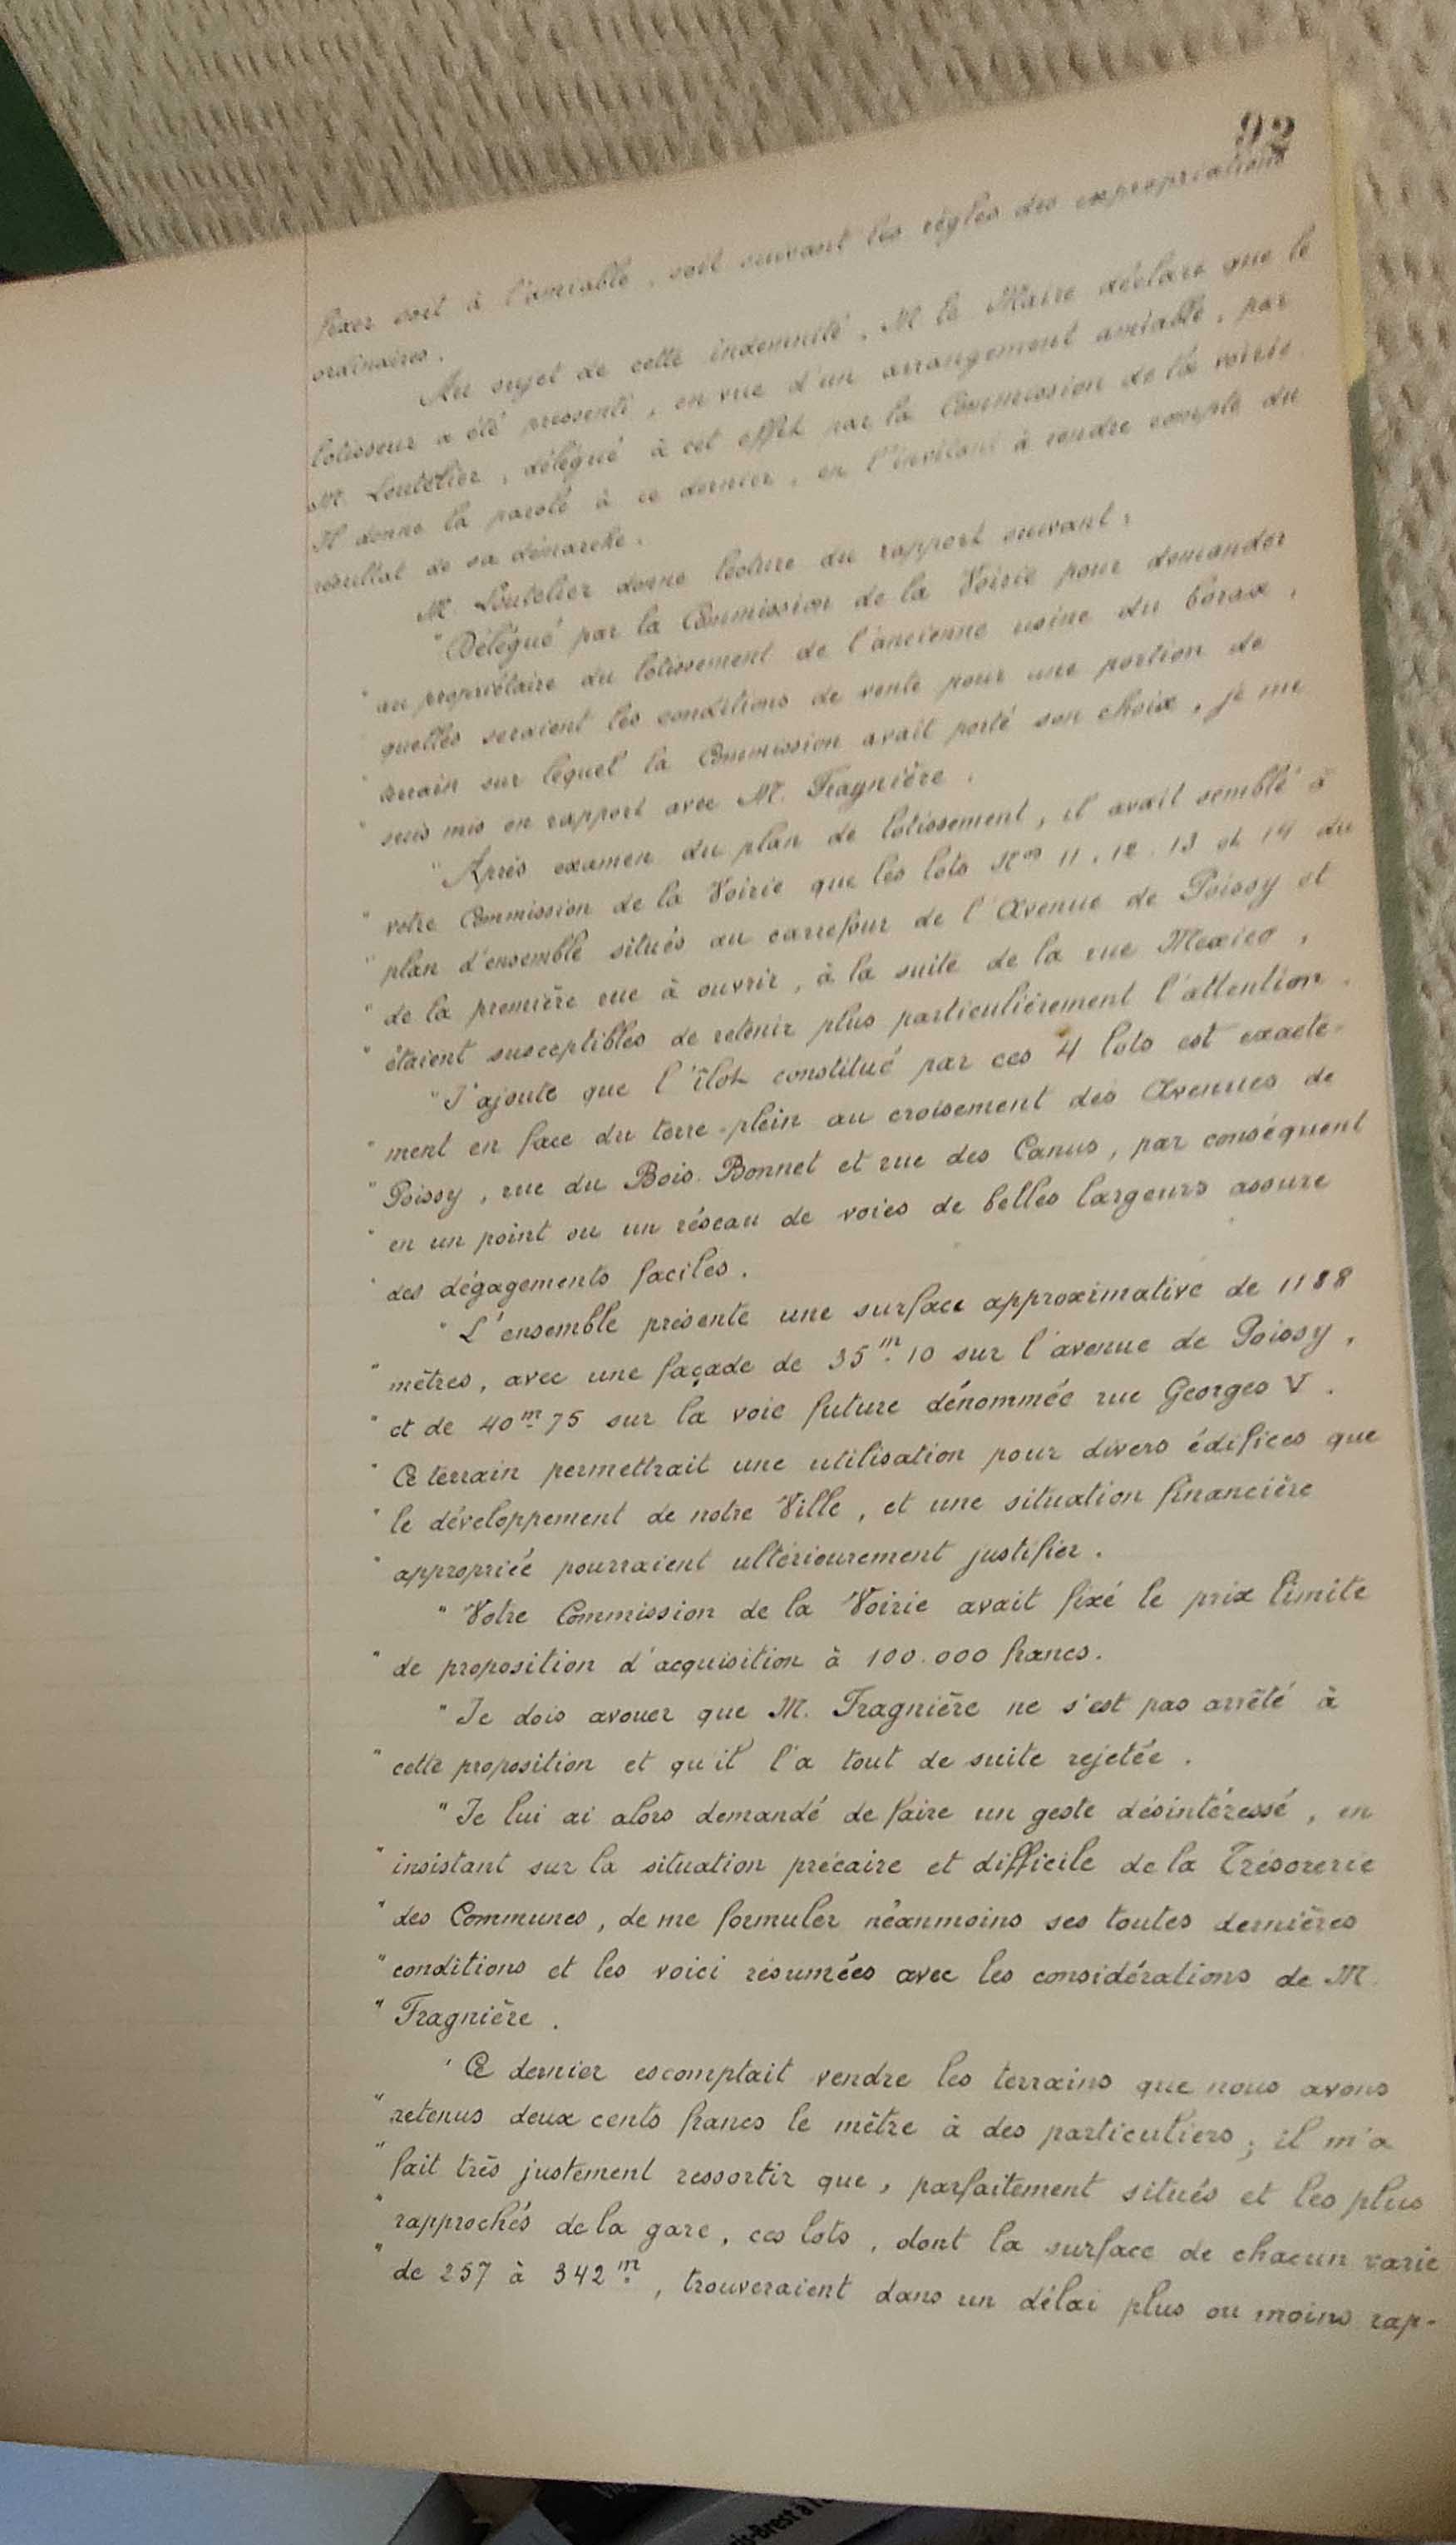 92
fixer soit à l'amiable, soit suivant les règles des expropriations
ordinaires.
Au sujet de cette indemnité, M le Maire déclare que le
lotisseur a été pressenti, en vue d'un arrangement amiable, par
M. Loutelier, délégué à cet effet par la Commission de la voirie.
Il donne la parole à ce dernier, en l'invitant à rendre compte du
résultat de sa démarche.
M. Loutelier donne lecture du rapport suivant :
"Délégué par la Commission de la Voirie pour demander
" au propriétaire du lotissement de l'ancienne usine du borax,
quelles seraient les conditions de vente pour une portion de
" terrain sur lequel la Commission avait porté son choix, je me
" suis mis en rapport avec M. Fragnière.
"Après examen du plan de lotissement, il avait semblé à
" votre Commission de la Voirie que les lots Nos 11, 12. 13 et 14 du
" plan d'ensemble situés au carrefour de l'Avenue de Poissy et
" de la première rue à ouvrir, à la suite de la rue Mexico,
" étaient susceptibles de retenir plus particulièrement l'attention.
"J'ajoute que l'îlot constitué par ces 4 lots est exacte-
" ment en face du terre-plein au croisement des Avenues de
" Poissy, rue du Bois. Bonnet et rue des Canus, par conséquent
" en un point ou un réseau de voies de belles largeurs assure
" des dégagements faciles.
" L'ensemble présente une surface approximative de 1188
" mètres, avec une façade de 35m.10 sur l'avenue de Poissy,
" et de 40m.75 sur la voie future dénommée rue Georges V.
" Ce terrain permettrait une utilisation pour divers édifices que
" le développement de notre Ville, et une situation financière
" appropriée pourraient ultérieurement justifier.
" Votre Commission de la Voirie avait fixé le prix limite
" de proposition d'acquisition à 100.000 francs.
" Je dois avouer que M. Fragnière ne s'est pas arrêté à
" cette proposition et qu'il l'a tout de suite rejetée.
" Je lui ai alors demandé de faire un geste désintéressé, en
" insistant sur la situation précaire et difficile de la Trésorerie
" des Communes, de me formuler néanmoins ses toutes dernières
" conditions et les voici résumées avec les considérations de M.
" Fragnière.
' Ce dernier escomptait vendre les terrains que nous avons
" retenus deux cents francs le mètre à des particuliers; il m'a
" fait très justement ressortir que, parfaitement situés et les plus
" rapprochés de la gare, ces lots, dont la surface de chacun varie
" de 257 à 342 m., trouveraient dans un délai plus ou moins rap-